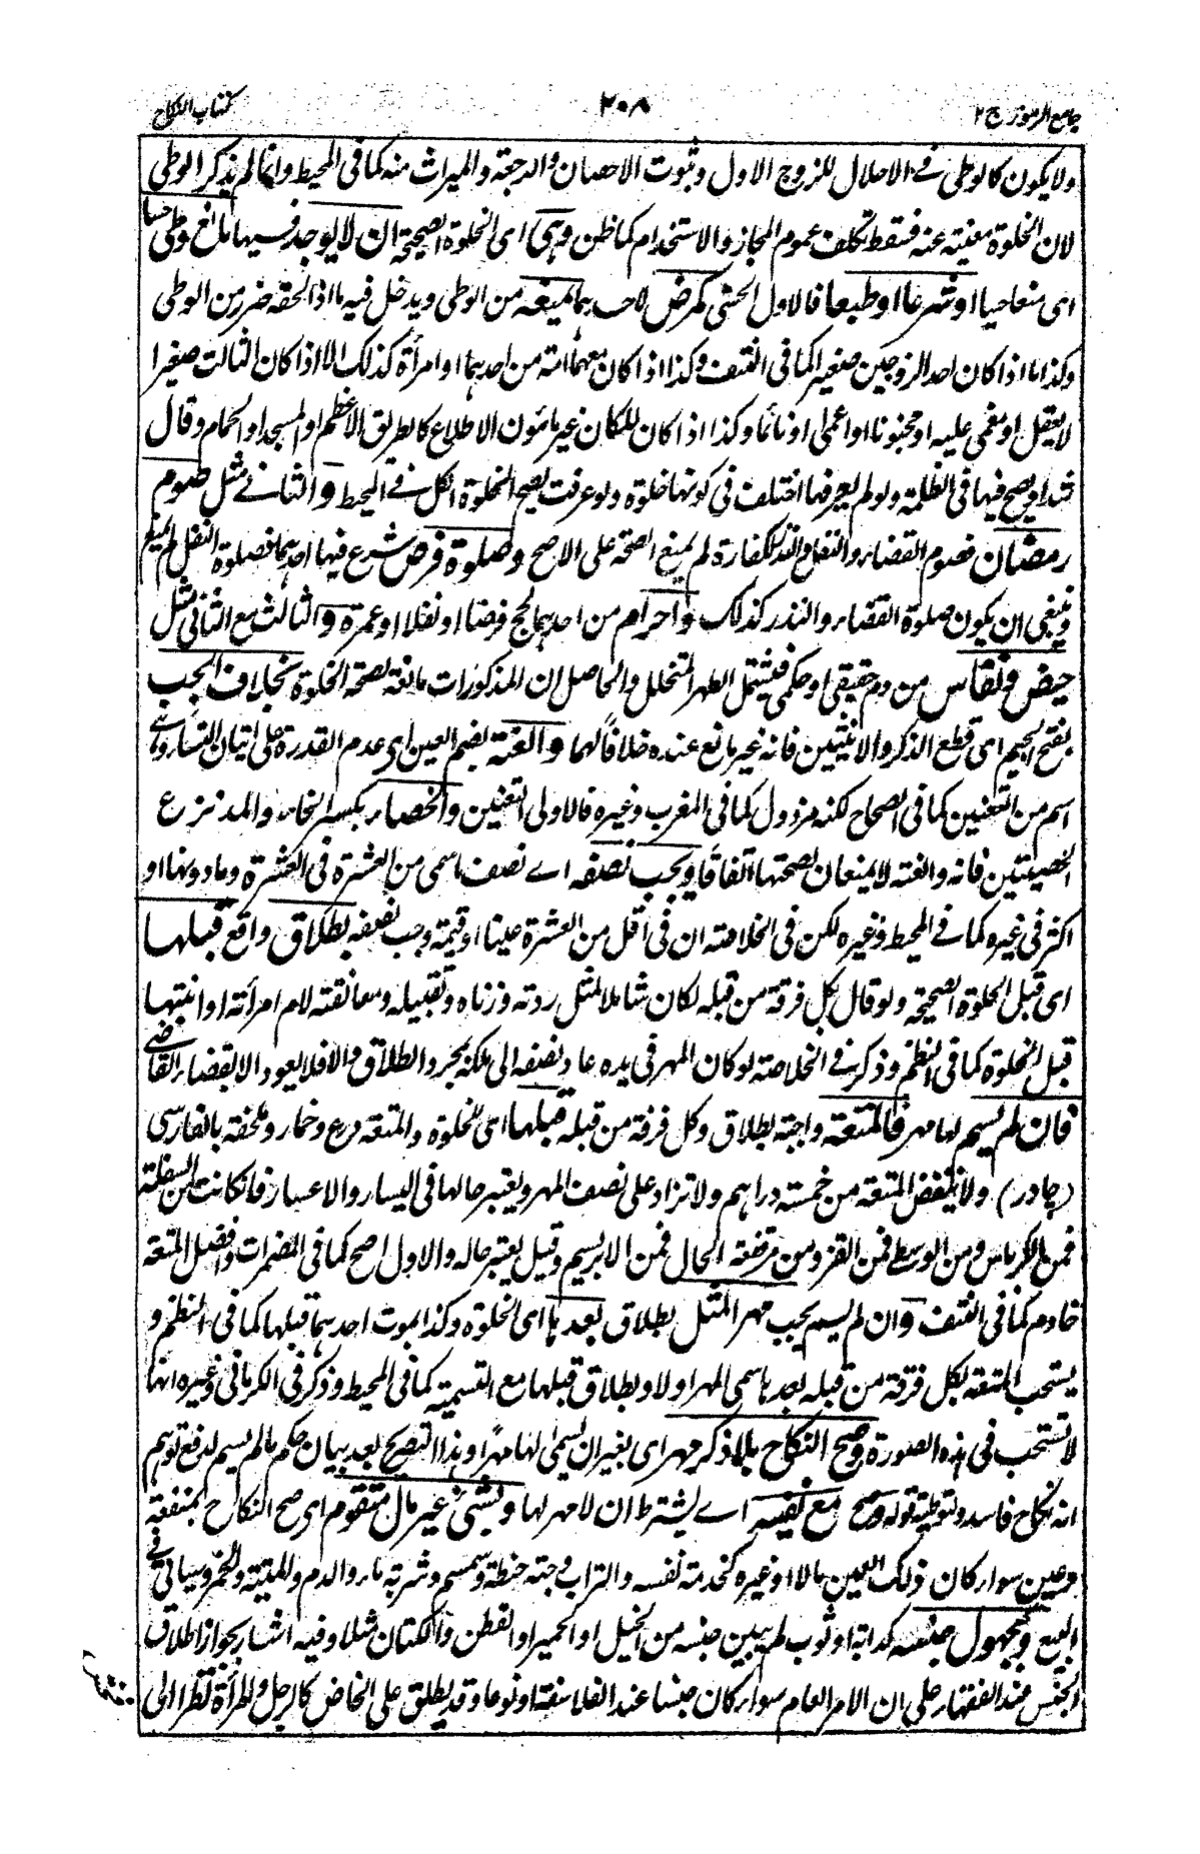 جامع الرموز ج ٢ ٢٠٨ كتاب النكاح
ولا يكون كالوطى فى الاحلال للزوج الاول وثبوت الاحصان والرجعة والميراث منه كما فى المحيط وانما لم يذكر الوطى
لان الخلوة مغنية عنه فسقط تكلف عموم المجاز والاستخدام كما ظن وهى اى الخلوة الصحيحة ان لا يوجد فيها مانع وطى حسا
اى منعا حسيا او شرعا او طبعا فالاول الحسى كمرض لاحدهما يمنعه من الوطى ويدخل فيه ما اذا لحقه ضرر من الوطى
وكذا ما اذا كان احد الزوجين صغيرا كما فى النتف وكذا اذا كان معهما امة من احدهما او امرأة كذلك الا اذا كان الثالث صغيرا
لا يعقل او مغمى عليه او مجنونا او اعمى او نائما وكذا اذا كان المكان غير مأمون الاطلاع كالطريق الاعظم او المسجد او الحمام وقال
شداد يصح فيها فى الظلمة ولو لم يعرفها اختلف فى كونها خلوة ولو عرفت يصح الخلوة الكل فى المحيط والثانى مثل صوم
رمضان فصوم القضاء والنفل والنذر والكفارة لم يمنع الصحة على الاصح وصلوة فرض شرع فيها احدهما فصلوة النفل لم يمنع
وينبغى ان يكون صلوة القضاء والنذر كذلك واحرام من احدهما لحج فرضا او نفلا او عمرة والثالث مع الثانى مثل
حيض ونفاس من دم حقيقى او حكمى فيشتمل الطهر المتخلل والحاصل ان المذكورات مانعة لصحة الخلوة بخلاف الجب
بفتح الجيم اى قطع الذكر والانثيين فانه غير مانع عنده خلافا لهما والعنة بضم العين اى عدم القدرة على اتيان النساء وهى
اسم من التعنين كما فى الصحاح لكنه مرذول كما فى المغرب وغيره فالاولى التعنين والخصاء بكسر الخاء والمد نزع
الخصيتين فانه والعنة لا يمنعان لصحتها اتفاقا ويجب نصفه اى نصف ما سمى من العشرة فى العشرة وما دونها او
اكثر فى غيره كما فى المحيط وغيره لكن فى الخلاصة ان فى اقل من العشرة عينا او قيمة وجب نصفه بطلاق واقع قبلها
اى قبل الخلوة الصحيحة ولو قال بكل فرقة من قبله لكان شاملا لمثل ردته وزناه وتقبيله ومعانقته لام امرأته او ابنتها
قبل الخلوة كما فى النظم وذكر فى الخلاصة لو كان المهر فى يده عاد نصفه الى ملكه بمجرد الطلاق والا فلا يعود الا بقضاء القاضى
فان لم يسم لها مهر فالمتعة واجبة بطلاق وكل فرقة من قبله قبلها اى الخلوة والمتعة درع وخمار وملحفة بالفارسى
(چادر) ولا ينقص المتعة من خمسة دراهم ولا تزاد على نصف المهر ويعتبر حالها فى اليسار والاعسار فان كانت من السفلة
فمن الكرباس ومن الوسط فمن القز ومن مرتفعة الحال فمن الابريسم وقيل يعتبر حاله والاول اصح كما فى المضمرات وافضل المتعة
خادم كما فى النتف وان لم يسم يجب مهر المثل بطلاق بعدها اى الخلوة وكذا بموت احدهما قبلها كما فى النظم و
يستحب المتعة بكل فرقة من قبله بعدها سمى المهر اولا وبطلاق قبلها مع التسمية كما فى المحيط وذكر فى الكرمانى وغيره انها
لا تستحب فى هذه الصورة وصح النكاح بلا ذكر مهر اى بغير ان يسمى لها مهرا وهذا التصريح بعد بيان حكم ما لم يسم لدفع توهم
انه نكاح فاسد وتوطية قوله وصح مع نفيه اى بشرط ان لا مهر لها وبشىء غير مال متقوم اى صح النكاح بمنفعة
وعين سواء كان ذلك العين مالا او غيره كخدمة نفسه والتراب وحبة حنطة وسمسم وشربة ماء والدم والميتة والخمر وسيأتى فى
البيع وبمجهول جنسه كدابة او ثوب لم يبين جنسه من الخيل او الحمير او القطن والكتان مثلا وفيه اشارة بجواز اطلاق
الجنس عند الفقهاء على ان الامر العام سواء كان جنسا عند الفلاسفة او نوعا وقد يطلق على الخاص كالرجل والمرأة نظرا الى